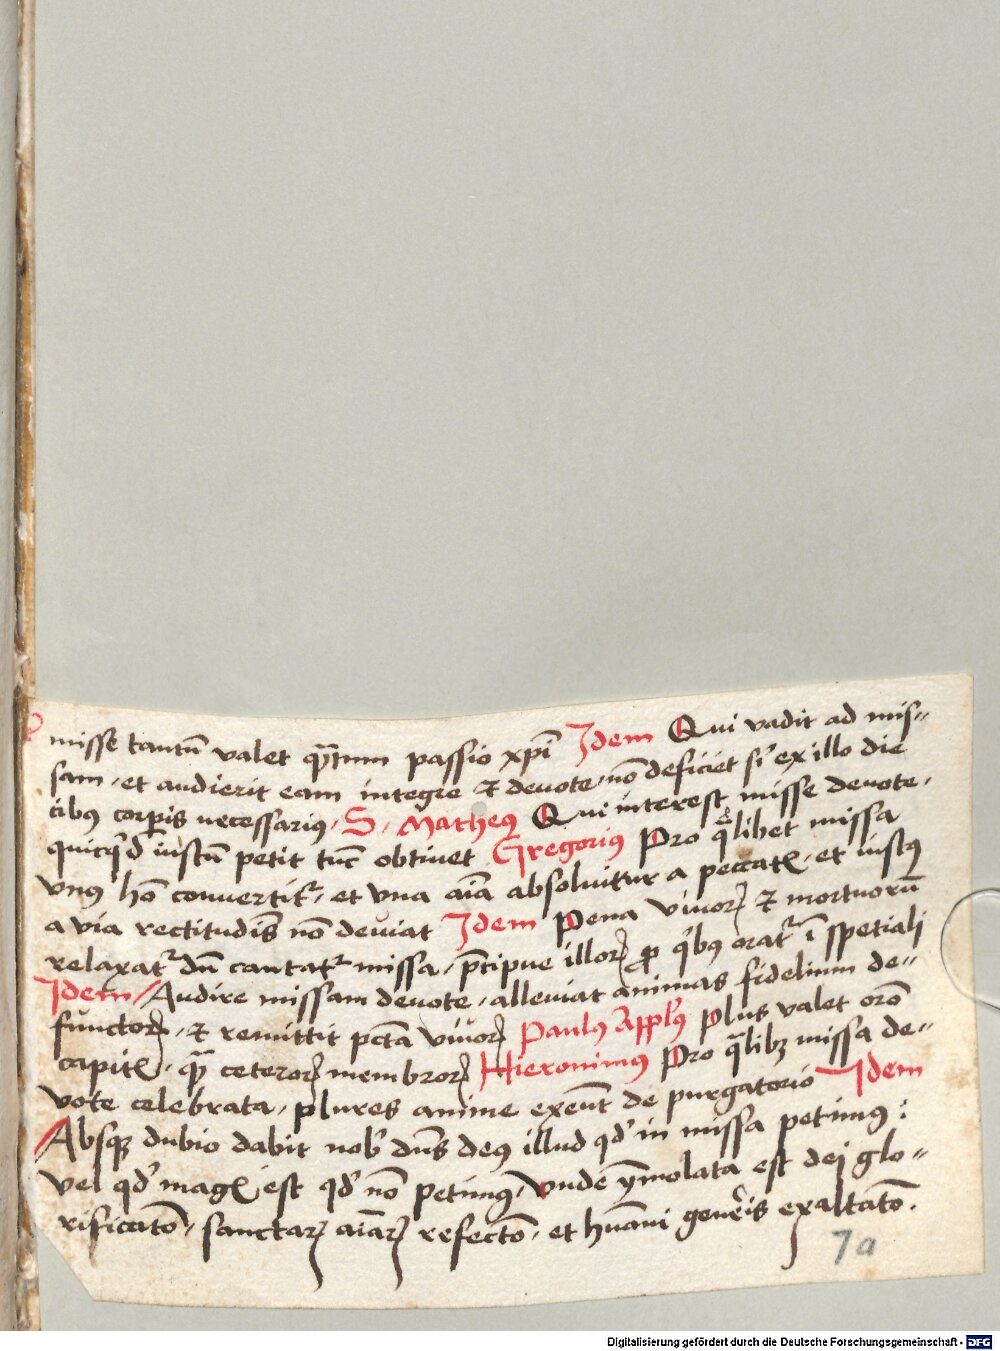 misse tantū valet qͣtum passio xp̄i Idem Qui vadit ad mis⸗
sam, et audierit eam integre & deuote, nō deficiet si' ex illo die
cibꝰ corꝑis necessariꝰ, S, Matheꝰ Qui interest misse deuote,
quicqͥd iustū petit tūc obtinet Gregoriꝰ Pro qͣlibet missa
vnꝰ hō conuertit᷑, et vna aīa absoluitur a peccatꝭ, et iustꝰ
a via rectitudīs nō deuiat Idem Pena viuoꝝ & mortuorū
relaxat᷑ dū cantat᷑ missa, p̄cipue illoꝝ ꝓ qͥbꝰ orat᷑ ī spetiali
Idem Audire missam deuote, alleuiat animas fidelium de⸗
functoꝝ, & remittit pctā viuoꝝ Paulꝰ App̄lꝰ Plus valet orō
capitꝭ, qͣ ceteroꝝ membroꝝ Hieronimus Pro qͣlibꝫ missa de⸗
vote celebrata, plures anime exeūt de purgatorio Idem
Absqꝫ dubio dabit nob' dn̄s deꝰ illud qd' in missa petimꝰ:
vel qd' magꝭ est qd' nō petimꝰ, Vnde ȳmolata est dej glo⸗
rificatō, sanctaꝝ aīaꝝ refectō, et hūani gen̄ris exaltatō.
7a
Digitalisierung gefördert durch die Deutsche Forschungsgemeinschaft - DFG